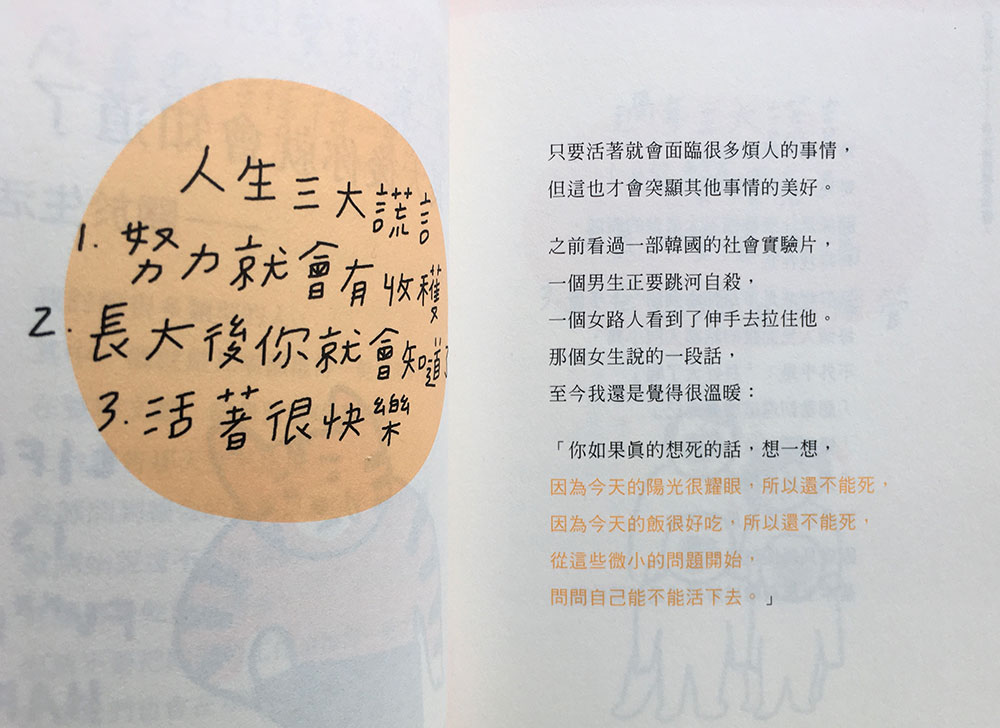 人生三大謊言
1. 努力就會有收穫
2. 長大後你就會知道了
3. 活著很快樂
只要活著就會面臨很多煩人的事情，
但這也才會突顯其他事情的美好。
之前看過一部韓國的社會實驗片，
一個男生正要跳河自殺，
一個女路人看到了伸手去拉住他。
那個女生說的一段話，
至今我還是覺得很溫暖：
「你如果真的想死的話，想一想，
因為今天的陽光很耀眼，所以還不能死，
因為今天的飯很好吃，所以還不能死，
從這些微小的問題開始，
問問自己能不能活下去。」